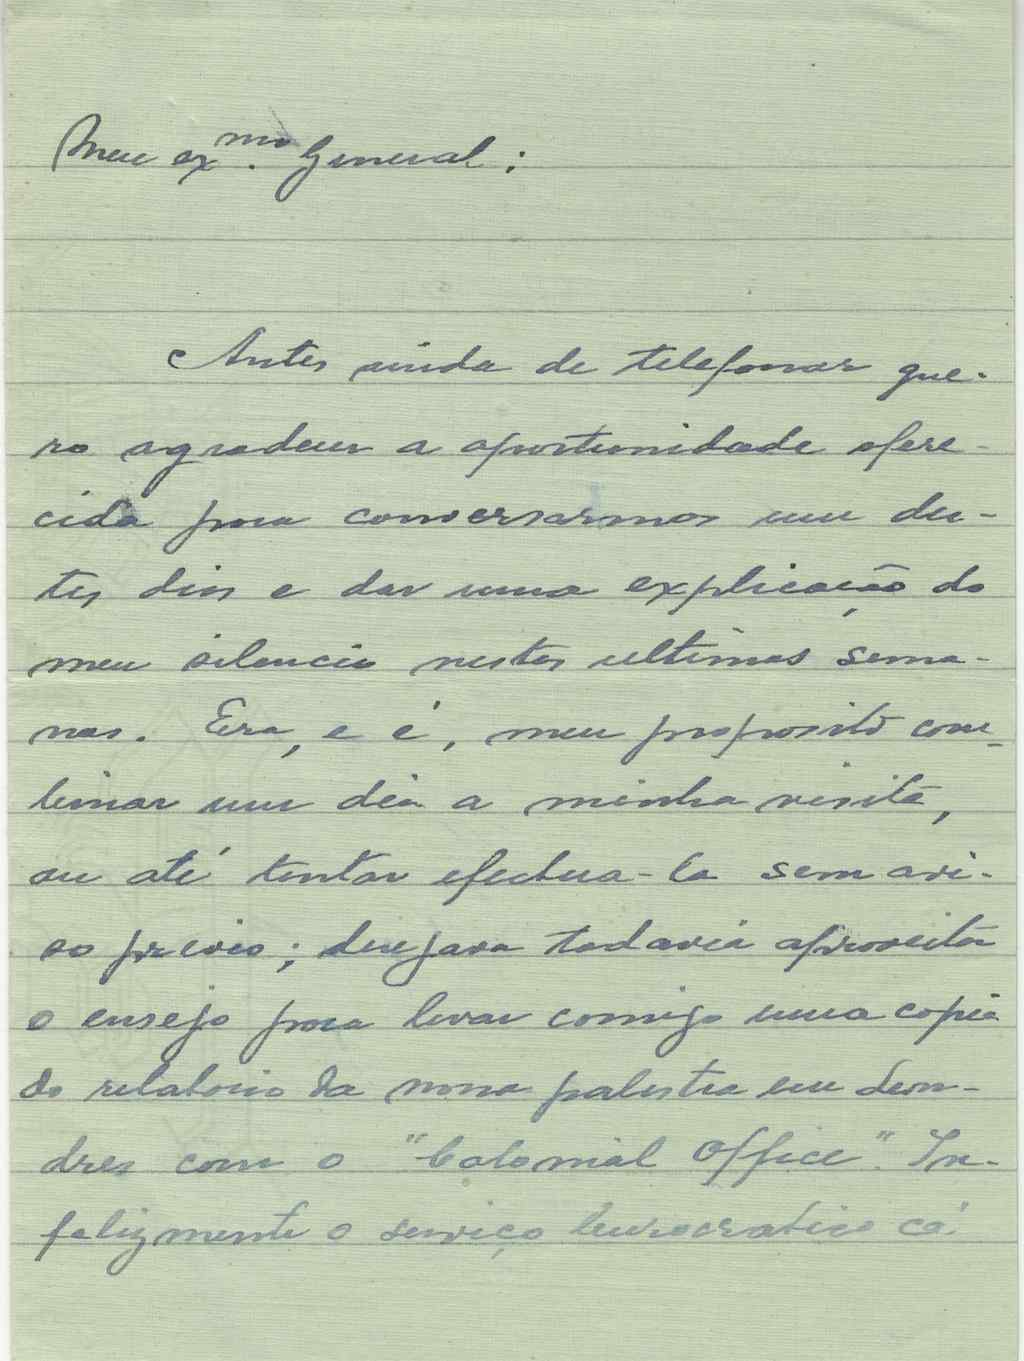 Meu exmo. General:
Antes ainda de telefonar que-
ro agradecer a oportunidade ofere-
cida para conversarmos um des-
tes dias e dar uma explicação do
meu silencio nestas ultimas sema-
nas. Era, e é, meu proposito com-
binar um dia a minha visita,
ou até tentar efectua-la sem avi-
so prévio; desejava todavia aproveitar
o ensejo para levar comigo uma copia
do relatorio da nossa palestra em Lon-
dres com o "Colonial Office". In-
felizmente o serviço burocratico cá